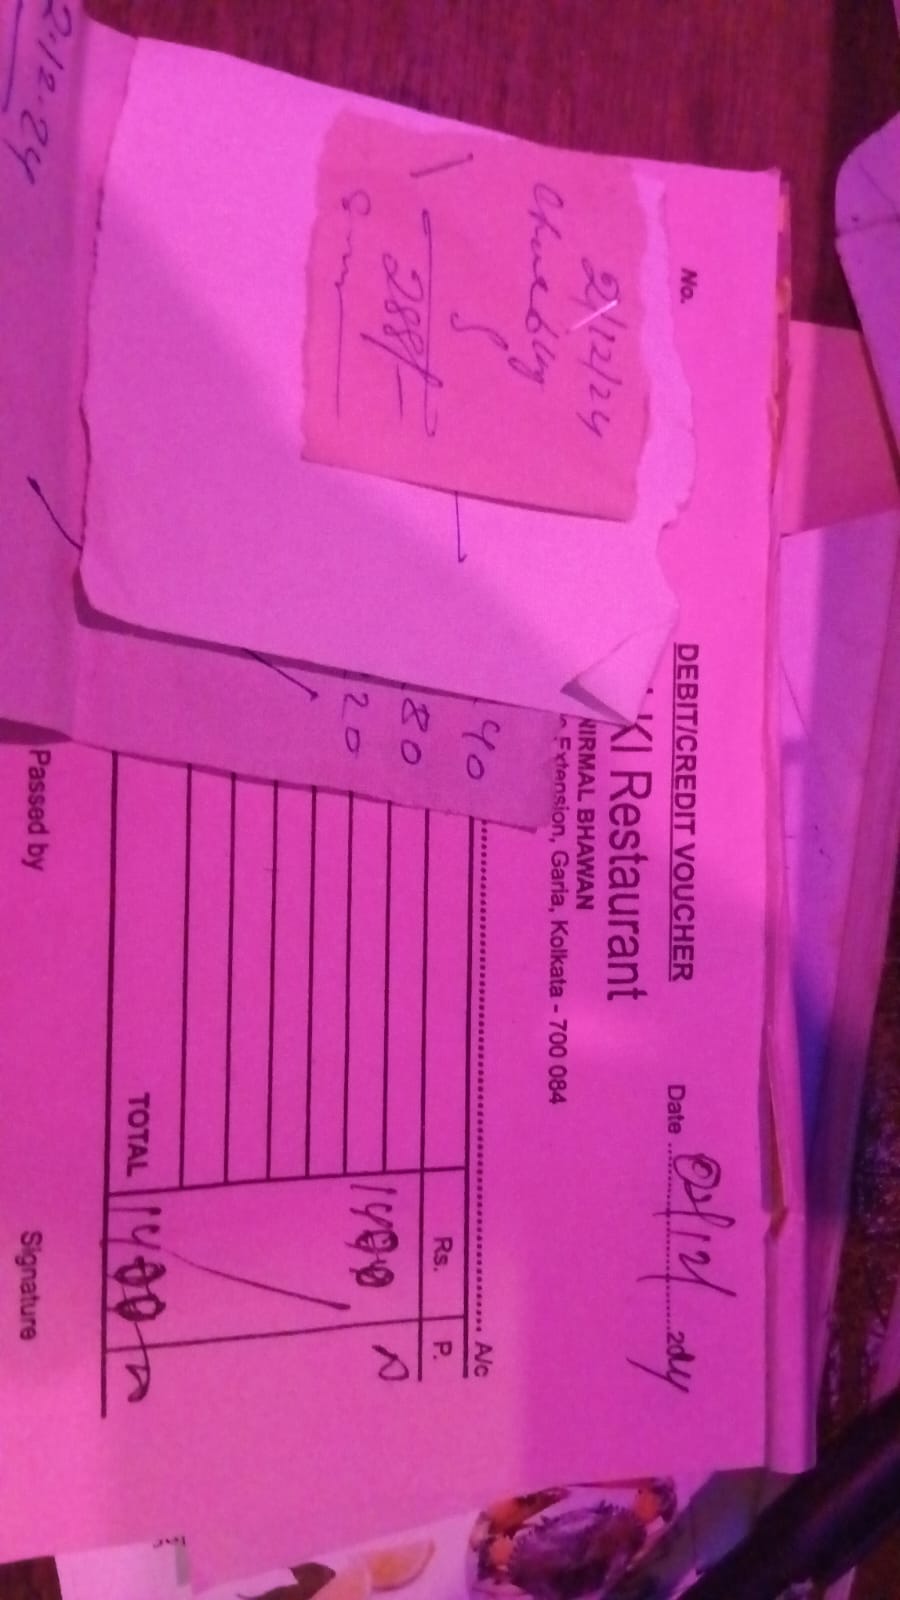 No.
DEBIT/CREDIT VOUCHER
Date 02/12/2024
KI Restaurant
NIRMAL BHAWAN
Extension, Garia, Kolkata - 700 084
A/c
Rs. P.
1400
TOTAL 1400
Passed by
Signature
2/12/24
288/-
40
80
20
2.12.24